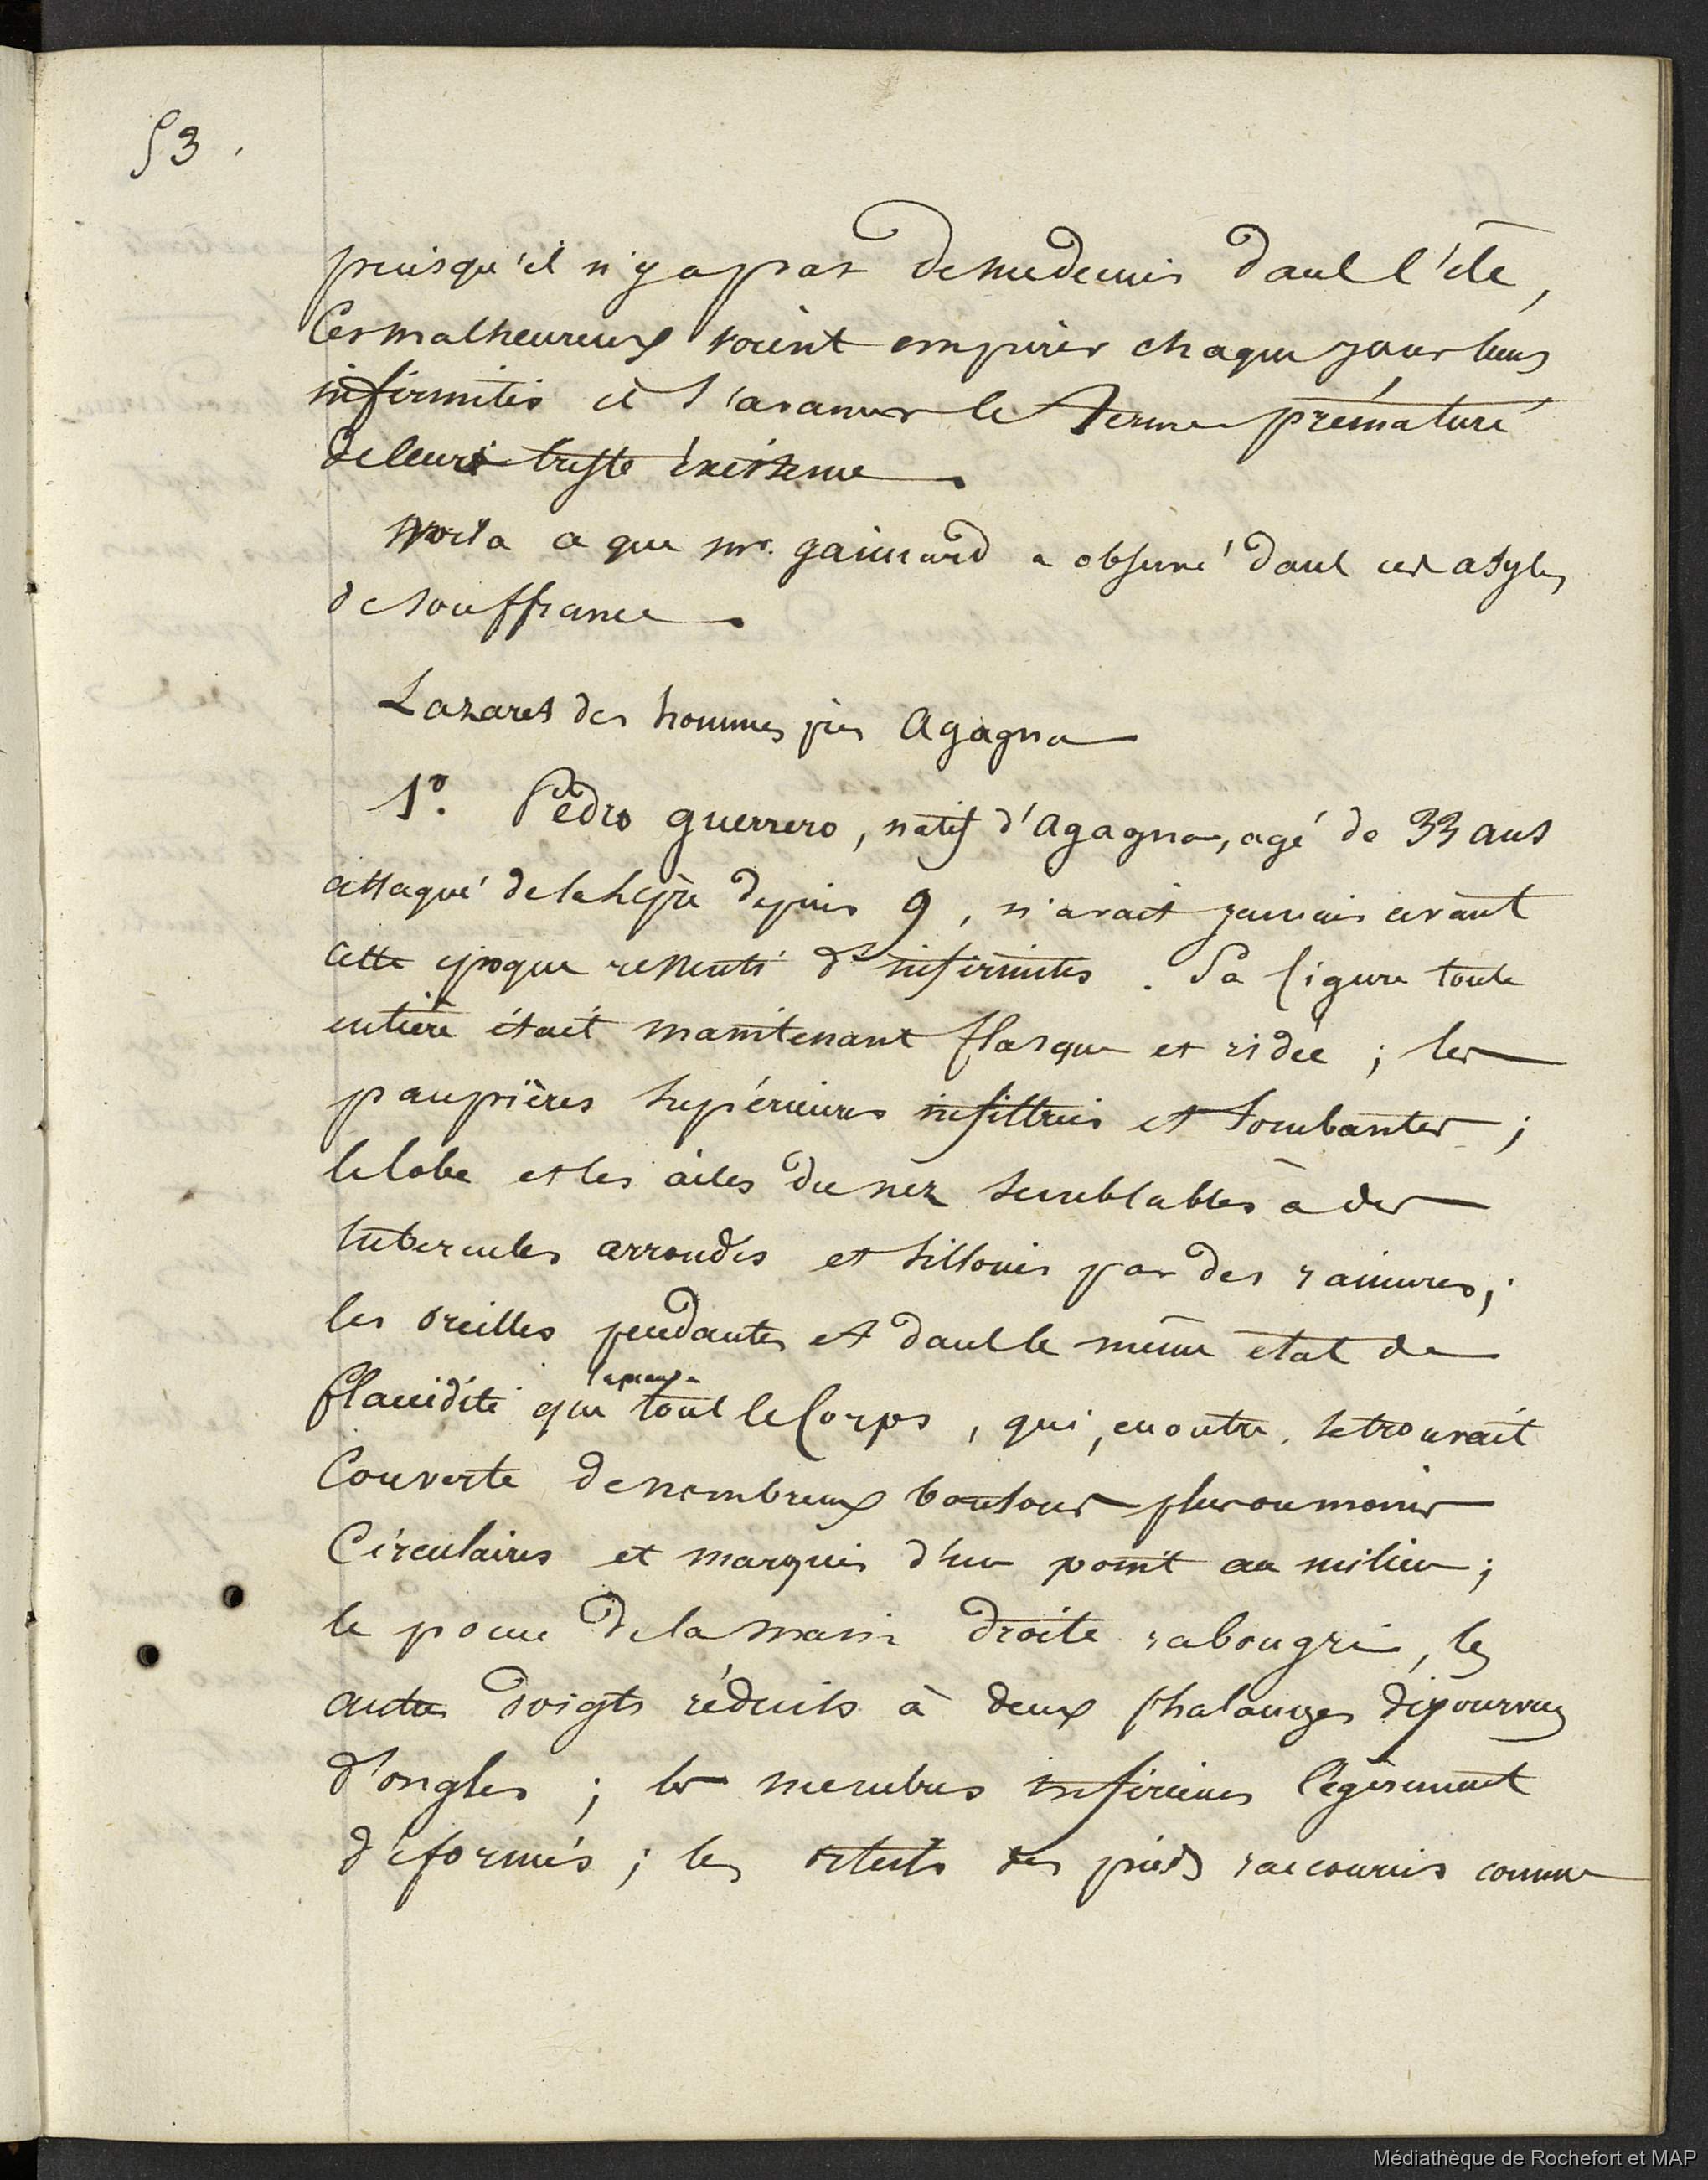 53.
puisqu'il n'y a pas de medecins dans l'ile,
Ces malheureux voient empirer chaque jour leurs
infirmités et s'avancer le terme prématuré
de leur triste éxistence.
Voila ce que mr. gaimard a observé dans ces asyles
de souffrance.
Lazaret des hommes près Agagna
1º. Pédro guerrero, natif d'Agagna, agé de 33 ans
attaqué de la lèpre depuis 9, n'avait jamais avant
cette époque ressenti d'infirmités. Sa figure toute
entière était maintenant flasque et ridée; les
paupières supérieures infiltrées et tombantes;
le lobe et les ailes du nez semblables à des
tubercules arrondis et sillonés par des rainures;
les oreilles pendantes et dans le même état de
la peau de
flaccidité que tout le Corps, qui, en outre, se trouvait
Couverte de nombreux boutons plus ou moins
Circulaires et marqués d'un point au milieu;
le pouce de la main droite rabougri, les
autres doigts réduits à deux phalanges dépourvues
d'ongles; les membres inférieurs légèrement
déformés; les orteils des pieds raccourcis comme
Médiathèque de Rochefort et MAP